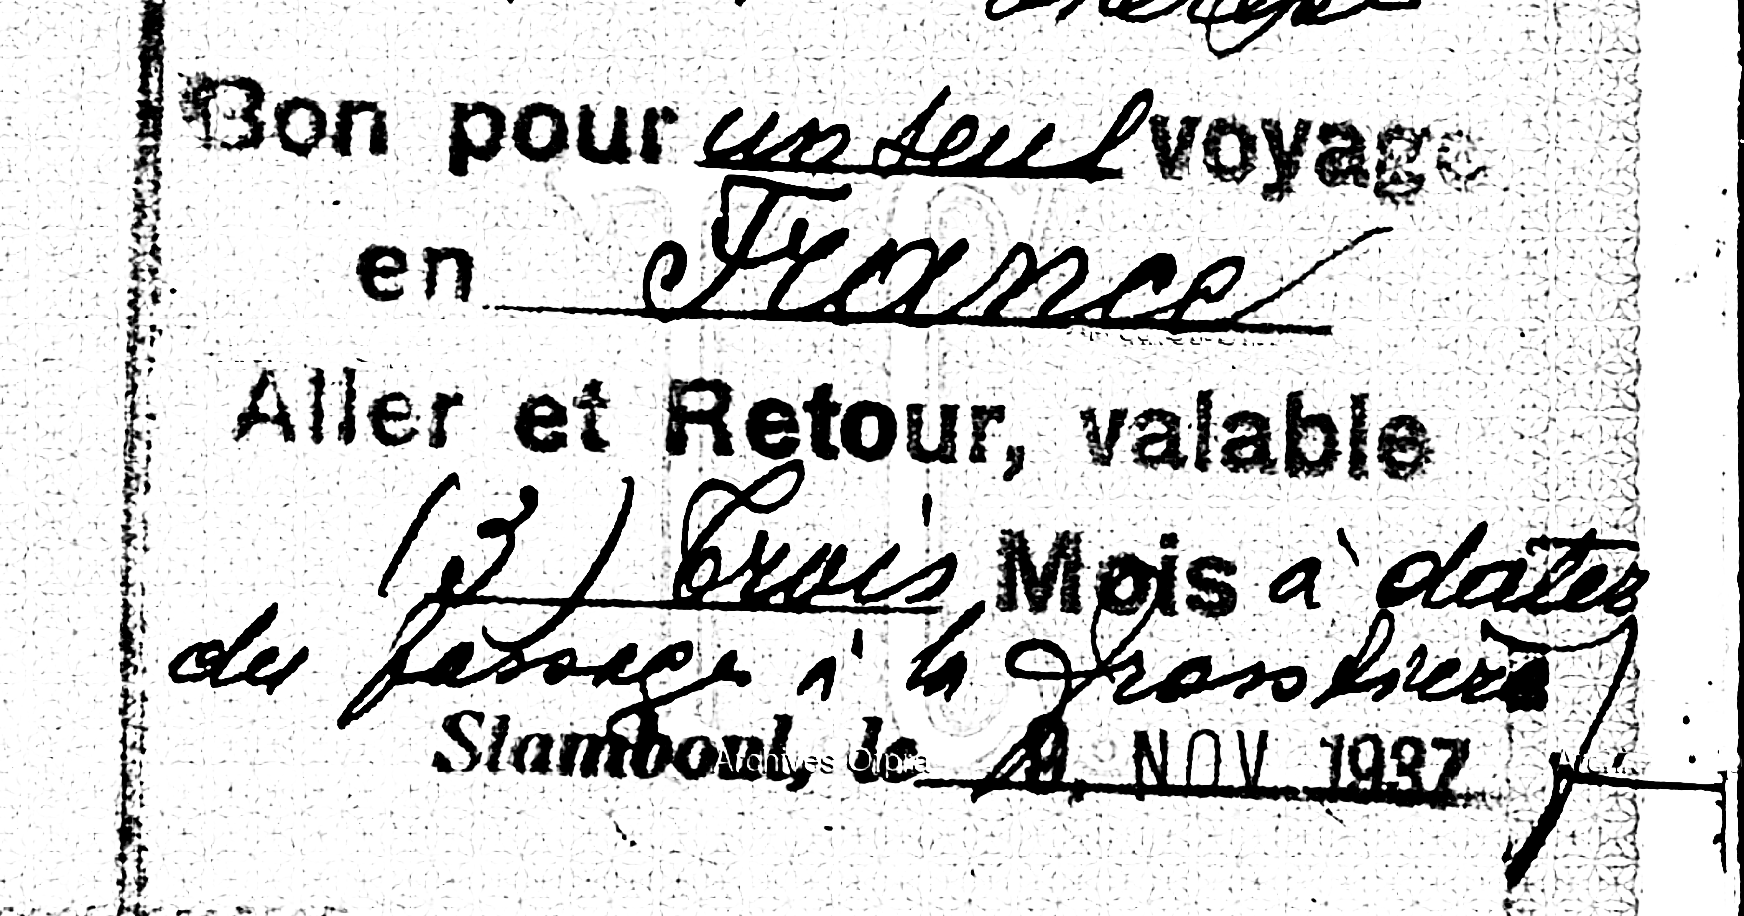 Bon pour un seul voyage
en France
Aller et Retour, valable
(3) Trois Mois à dater
du passage à la frontière
Stamboul, le 9 NOV 1937
Archives Ofpra